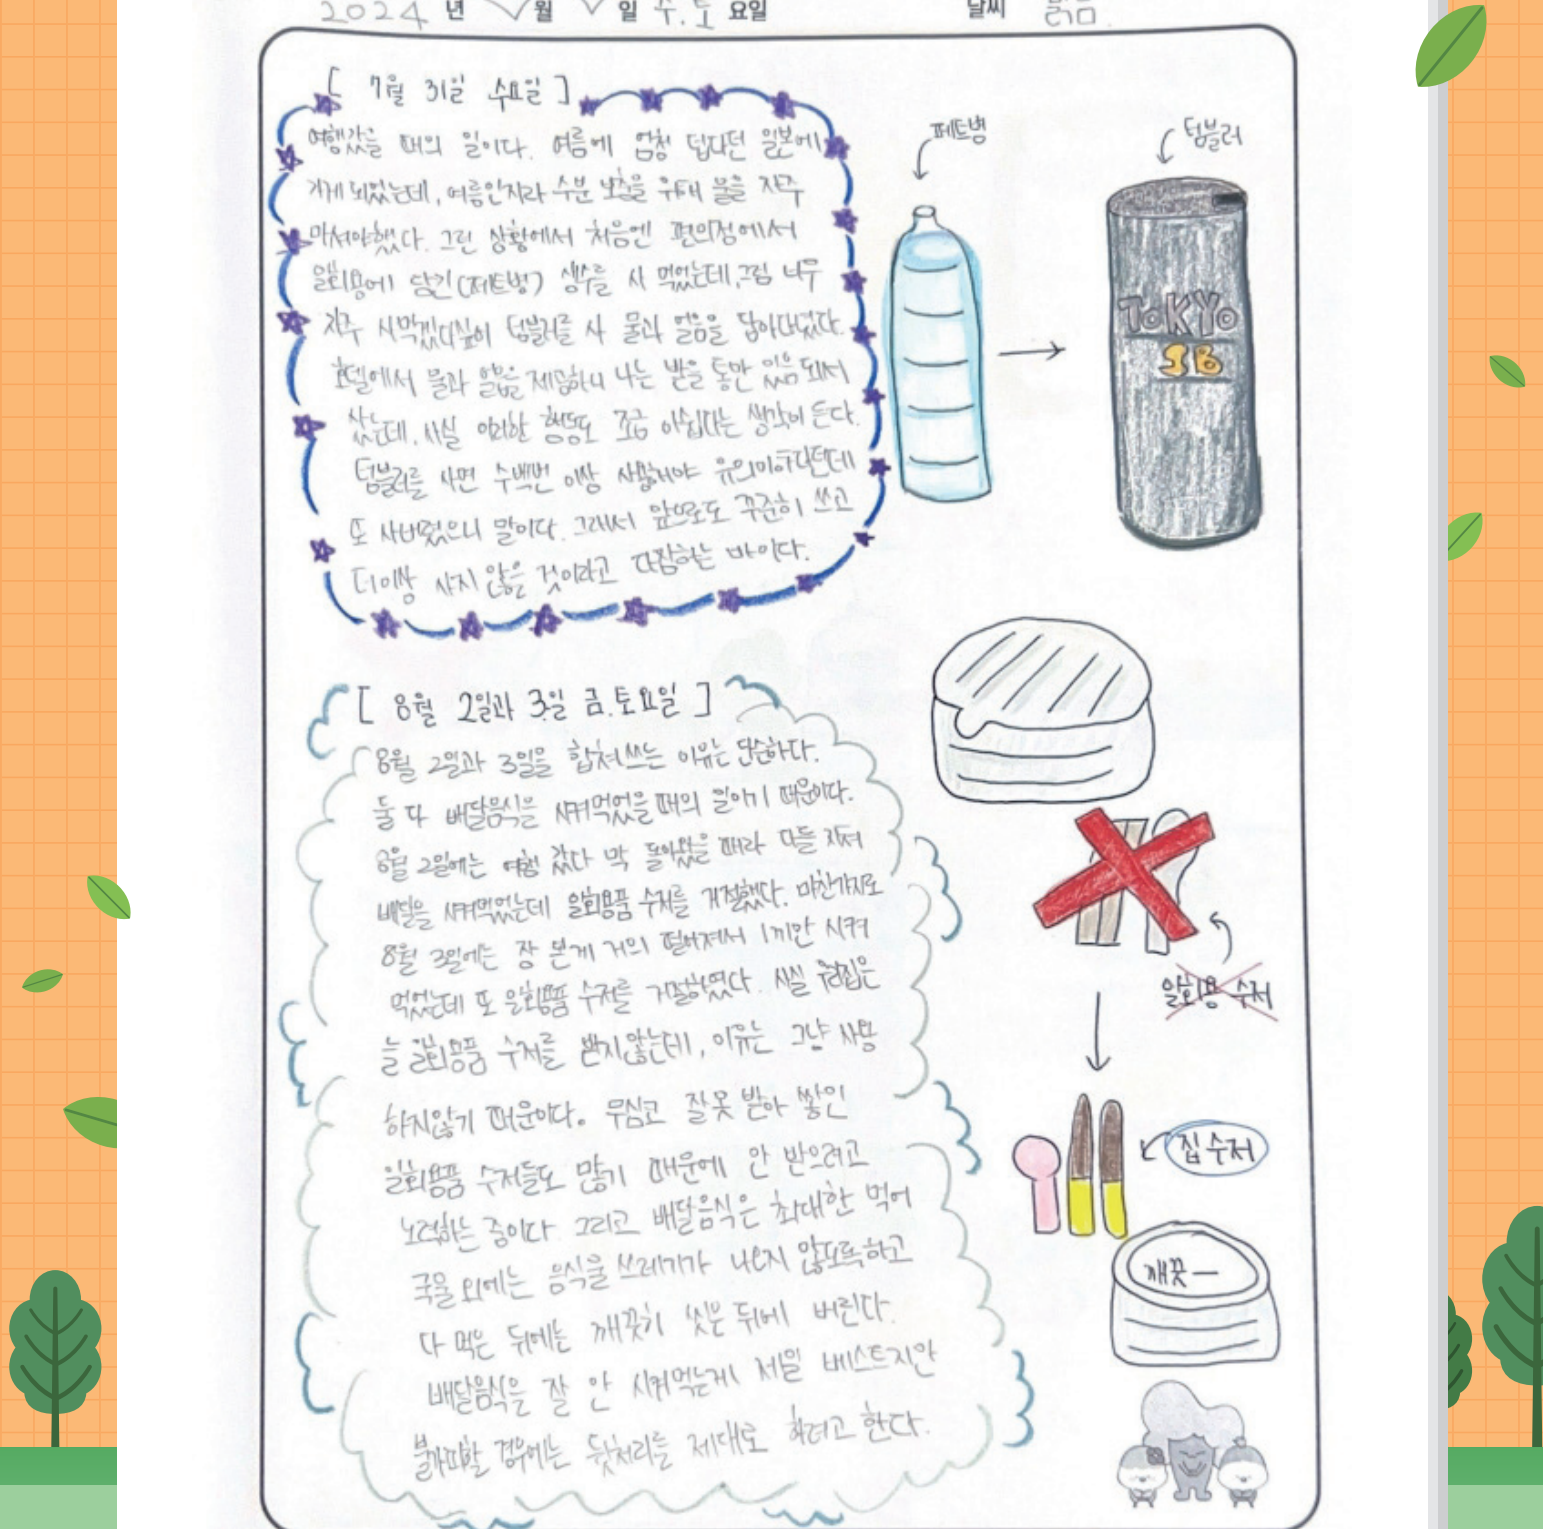 2024 년 월 일 수.토 요일 날씨 맑음
[ 7월 31일 수요일 ]
여행갔을 때의 일이다. 여름에 엄청 덥다던 일본에
가게 되었는데, 여름인지라 수분 보충을 위해 물을 자주
마셔야했다. 그런 상황에서 처음엔 편의점에서
일회용에 담긴(페트병) 생수를 사 먹었는데, 그럼 너무
자주 사먹겠다싶어 텀블러를 사 물과 얼음을 담아다녔다.
호텔에서 물과 얼음을 제공하니 나는 받을 통만 있음 되서
샀는데, 사실 이러한 행동도 조금 아쉽다는 생각이 든다.
텀블러를 사면 수백번 이상 사용해야 유의미하다던데
또 사버렸으니 말이다. 그래서 앞으로도 꾸준히 쓰고
더이상 사지 않을 것이라고 다짐하는 바이다.
페트병
텀블러
TOKYO
JB
[ 8월 2일과 3일 금.토요일 ]
8월 2일과 3일을 합쳐쓰는 이유는 단순하다.
둘 다 배달음식을 시켜먹었을 때의 일이기 때문이다.
8월 2일에는 여행 갔다 막 돌아왔을 때라 다들 지쳐
배달을 시켜먹었는데 일회용품 수저를 거절했다. 마찬가지로
8월 3일에는 장 본게 거의 떨어져서 1끼만 시켜
먹었는데 또 일회용품 수저를 거절하였다. 사실 우리집은
늘 일회용품 수저를 받지않는데, 이유는 그냥 사용
하지않기 때문이다. 무심코 잘못 받아 쌓인
일회용품 수저들도 많기 때문에 안 받으려고
노력하는 중이다 그리고 배달음식은 최대한 먹어
국물 외에는 음식물 쓰레기가 나오지 않도록하고
다 먹은 뒤에는 깨끗히 씻은 뒤에 버린다.
배달음식은 잘 안 시켜먹는게 제일 베스트지만
불가피할 경우에는 뒷처리를 제대로 하려고 한다.
일회용 수저
집 수저
깨끗—